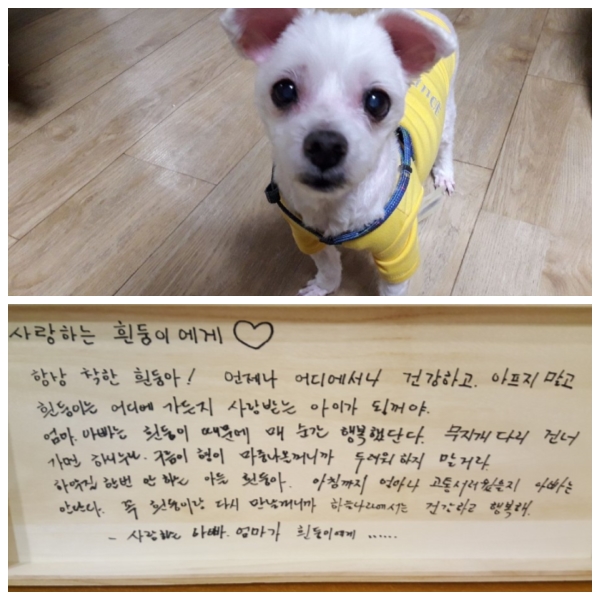 사랑하는 흰둥이에게 ♡
항상 착한 흰둥아! 언제나 어디에서나 건강하고. 아프지 말고
흰둥이는 어디에 가든지 사랑받는 아이가 될꺼야.
엄마. 아빠는 흰둥이 때문에 매 순간 행복했단다. 무지개 다리 건너
가면 형이 마중나올꺼니까 두려워 하지 말거라.
한번 안 하는 아들 흰둥아. 아침까지 얼마나 고통스러웠을지 아빠는
안단다. 꼭 흰둥이랑 다시 만날꺼니까 하늘나라에서는 건강하고 행복해.
- 사랑하는 아빠. 엄마가 흰둥이에게 ......